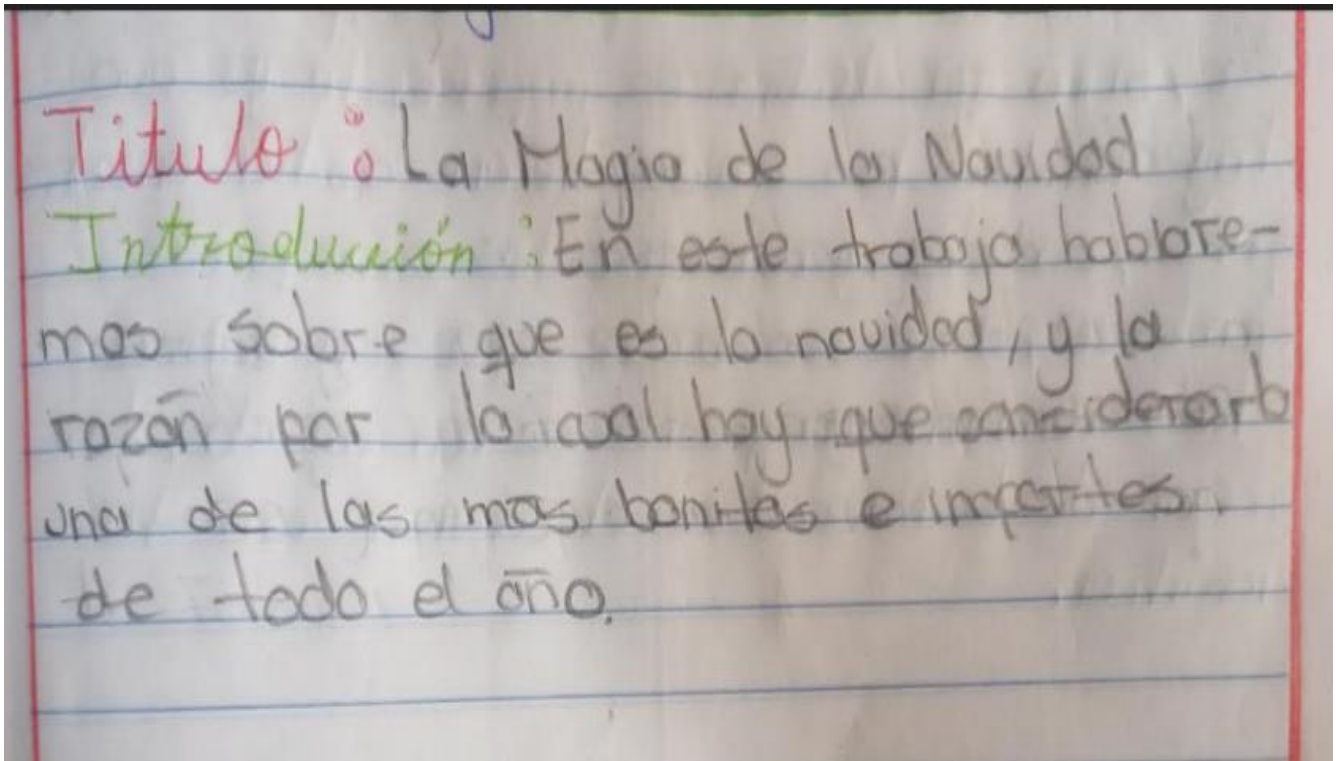 Titulo : La Magia de la Navidad
Introducción : En este trabajo hablare-
mos sobre que es la navidad, y la
razón por la cual hay que considerarla
una de las mas bonitas e importes
de todo el año.